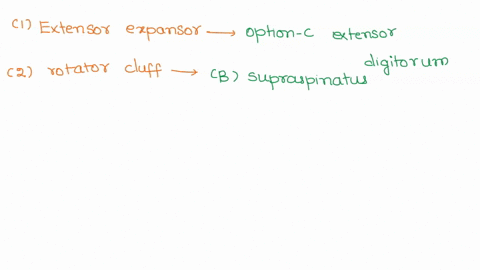 (1) Extensor expansor → option-c extensor
digitorum
(2) rotator cluff → (B) supraspinatus